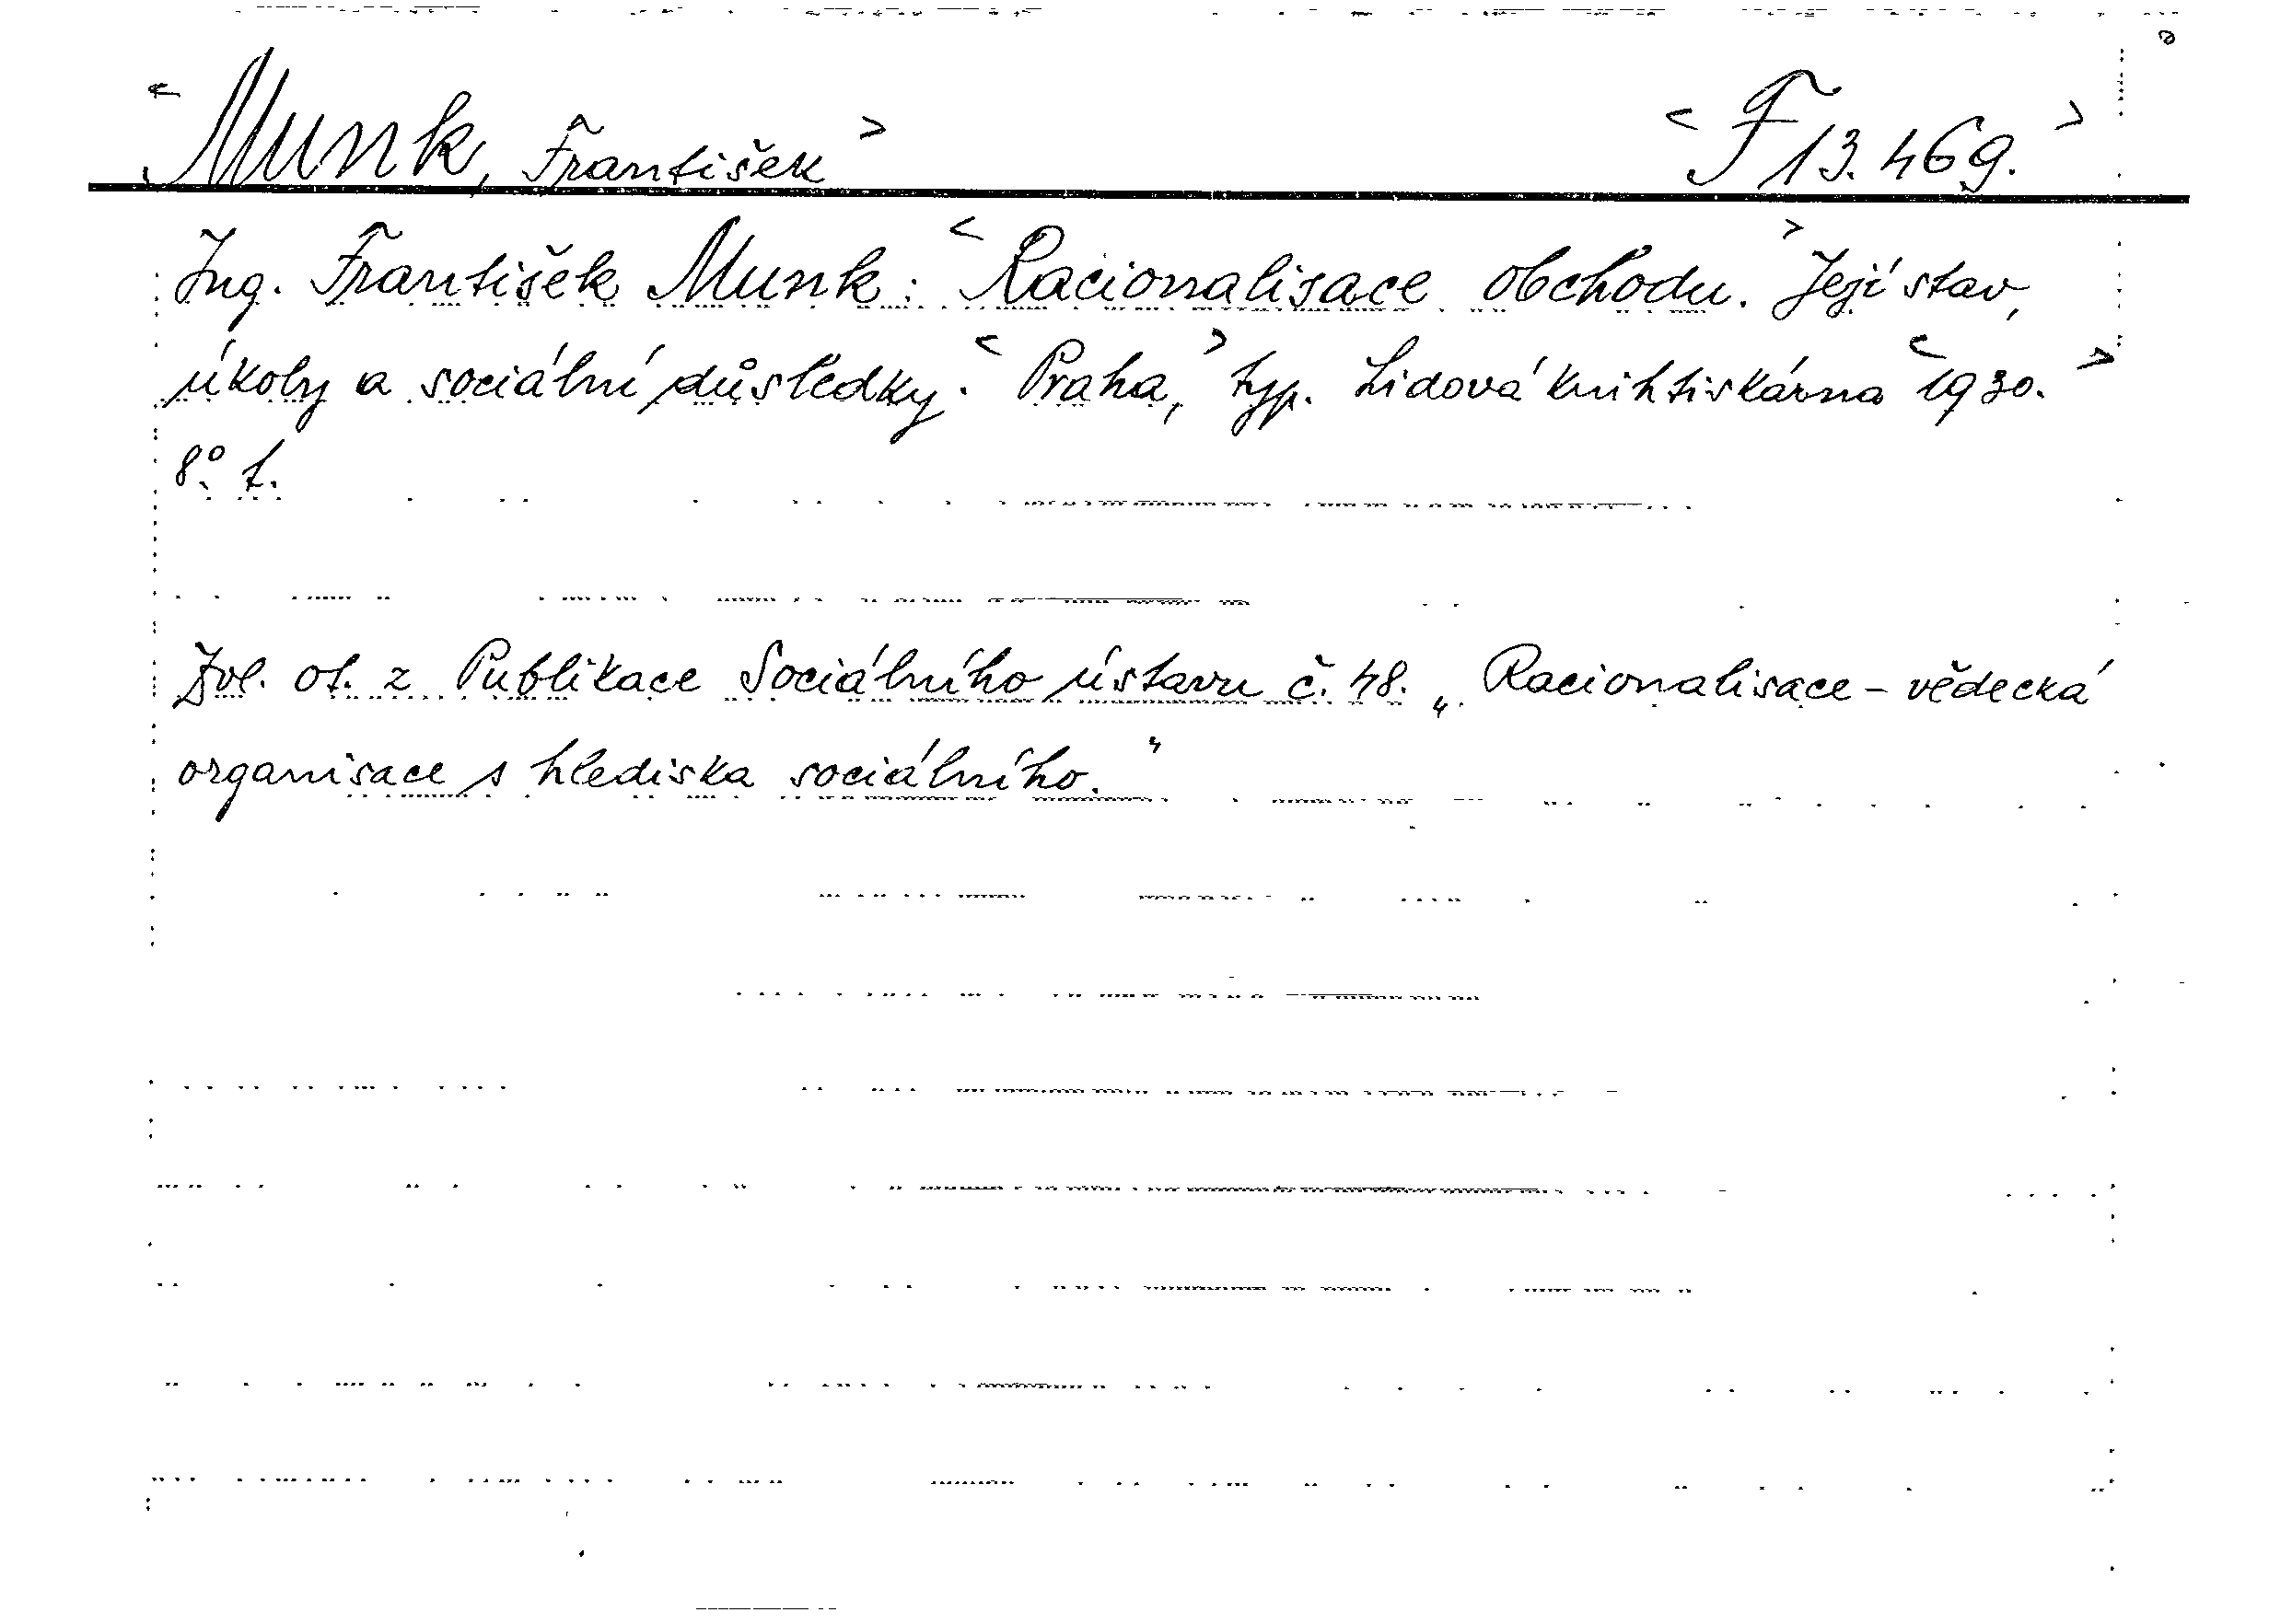 <Munk, František> <F 13.469.>
Ing. František Munk: <Racionalisace obchodu.> Její stav,
úkoly a sociální důsledky. <Praha,> typ. Lidová knihtiskárna <1930.>
8°. t.
Zvl. ot. z Publikace Sociálního ústavu č. 48. „Racionalisace - vědecká
organisace s hlediska sociálního."